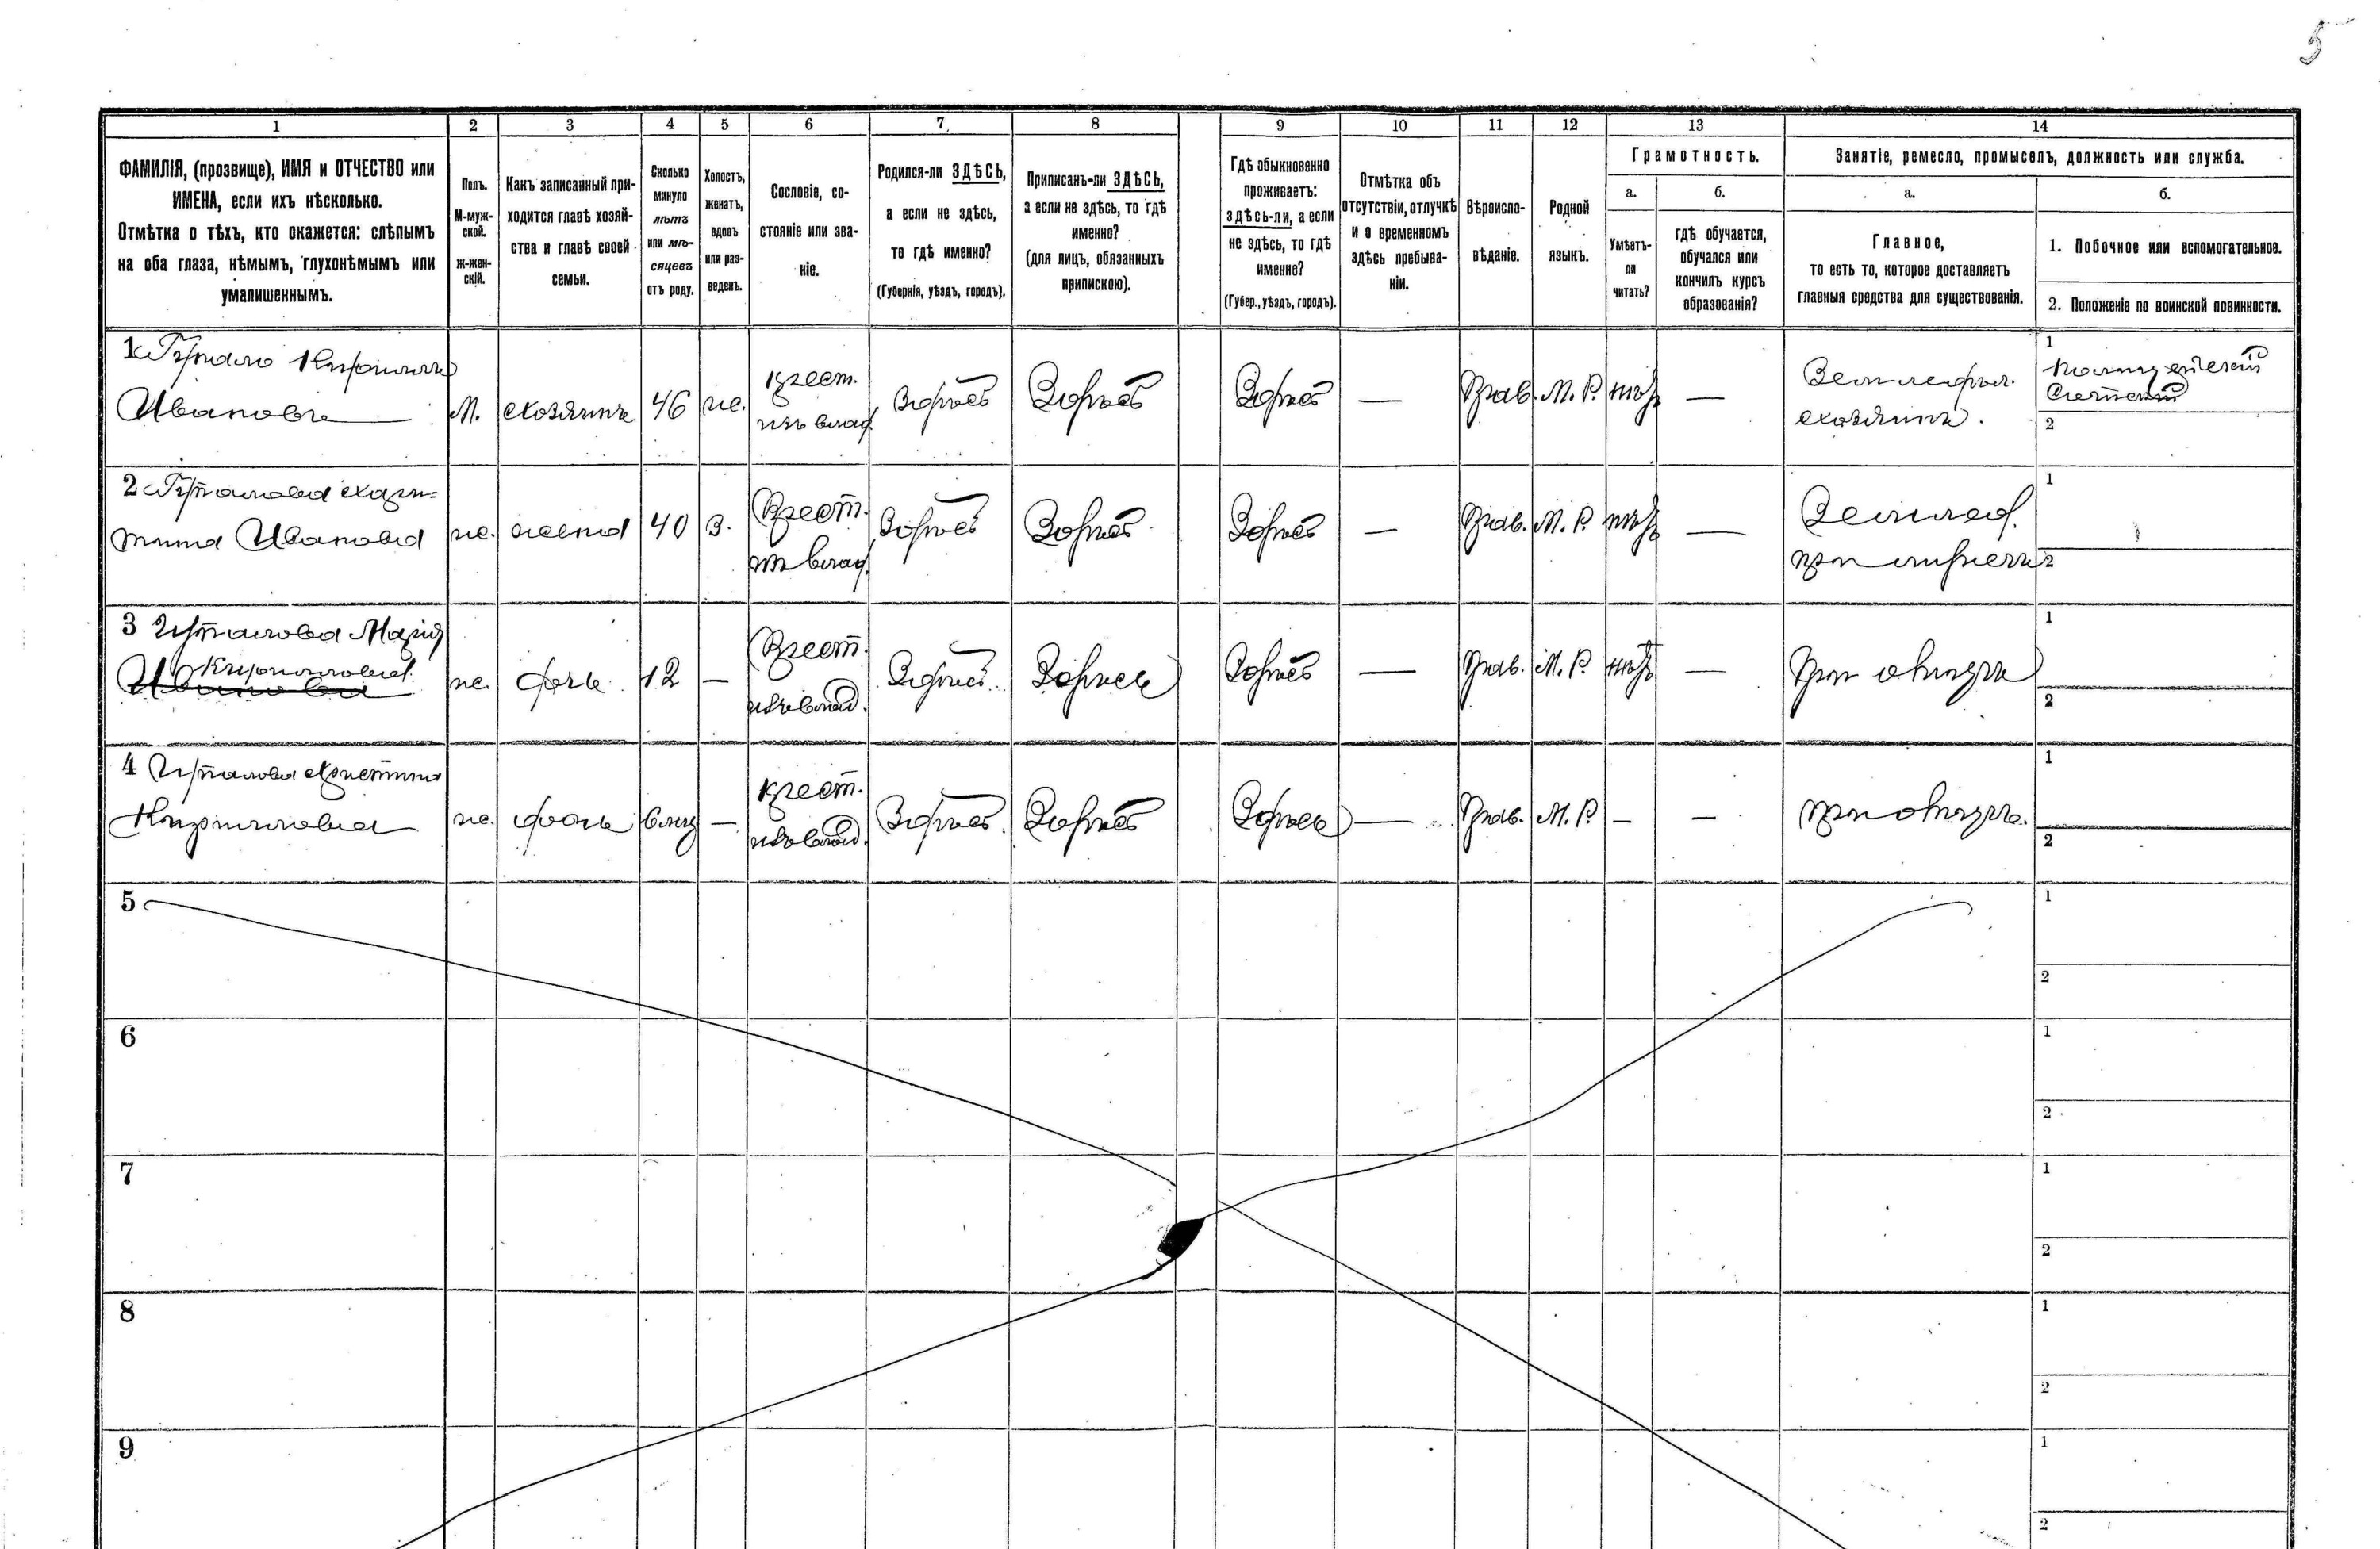 5
1 2 3 4 5 6 7 8 9 10 11 12 13 14
ФАМИЛІЯ, (прозвище), ИМЯ и ОТЧЕСТВО или
ИМЕНА, если ихъ нѣсколько.
Отмѣтка о тѣхъ, кто окажется: слѣпымъ
на оба глаза, нѣмымъ, глухонѣмымъ или
умалишеннымъ.
Полъ.
М-муж-
ской.
ж-жен-
скій.
Какъ записанный при-
ходится главѣ хозяй-
ства и главѣ своей
семьи.
Сколько
минуло
лѣтъ
или мѣ-
сяцевъ
отъ роду.
Холостъ,
женатъ,
вдовъ
или раз-
веденъ.
Сословіе, со-
стояніе или зва-
ніе.
Родился-ли ЗДѢСЬ,
а если не здѣсь,
то гдѣ именно?
(Губернія, уѣздъ, городъ).
Приписанъ-ли ЗДѢСЬ,
а если не здѣсь, то гдѣ
именно?
(для лицъ, обязанныхъ
припискою).
Гдѣ обыкновенно
проживаетъ:
здѣсь-ли, а если
не здѣсь, то гдѣ
именно?
(Губер., уѣздъ, городъ).
Отмѣтка объ
отсутствіи, отлучкѣ
и о временномъ
здѣсь пребыва-
ніи.
Вѣроиспо-
вѣданіе.
Родной
языкъ.
Грамотность.
а.
Умѣетъ-
ли
читать?
б.
гдѣ обучается,
обучался или
кончилъ курсъ
образованія?
Занятіе, ремесло, промыселъ, должность или служба.
а.
Главное,
то есть то, которое доставляетъ
главныя средства для существованія.
б.
1. Побочное или вспомогательное.
2. Положеніе по воинской повинности.
1 Кирилло
Ивановъ — М. хозяинъ 46 ж. крест. изъ влад. Здѣсь Здѣсь Здѣсь — Прав. М. Р. нѣтъ — Землед. хозяинъ.
1
2
2
Ивановна ж. жена 40 з. Крест. изъ влад. Здѣсь Здѣсь Здѣсь — Прав. М. Р. нѣтъ — Землед. при мужѣ
1
2
3 Марія
Кирилловна ж. дочь 12 — Крест. изъ влад. Здѣсь Здѣсь Здѣсь — Прав. М. Р. нѣтъ — При отцѣ
1
2
4 Христина
Кирилловна ж. дочь — крест. изъ влад. Здѣсь Здѣсь Здѣсь — Прав. М. Р. — — при отцѣ.
1
2
5 1
2
6 1
2
7 1
2
8 1
2
9 1
2